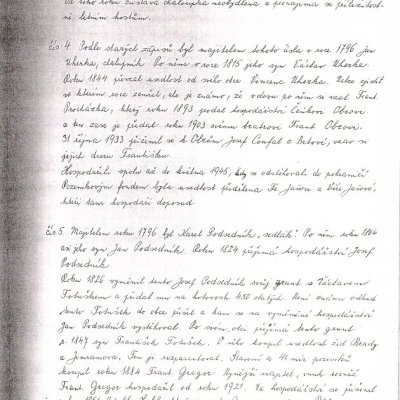 Od toho roku zůstává chaloupka neobydlena a pronajímá se příležitostně
letním hostům.
čís 4. Podle starých zápisů byl majitelem tohoto čísla v roce 1796 Jan
Uherka, chalupník. Po něm v roce 1815 jeho syn Václav Uherka.
Roku 1844 převzal usedlost od něho otec Vincenc Uherka. Nelze zjistit
ve kterém roce zemřel, ale je známo, že vdovu po něm si vzal Frant.
Procházka, který roku 1893 prodal hospodářství Čeňkovi Obzovi
a ten zase je předal roku 1903 svému bratrovi Frant Obzovi.
31 října 1933 přiženil se k Obzům, Josef Coufal z Brtové, vzav si
jejich dceru Františku.
Hospodařili spolu až do května 1945, kdy se odstěhoval do pohraničí
Pozemkovým fondem byla usedlost přidělena Fr Jašovi a Věře Jašové,
kteří tam hospodaří doposud.
čís 5. Majitelem roku 1796 byl Karel Podsedník, sedlák. Po něm roku 1804
až jeho syn Jan Podsedník. Roku 1824 přijímá hospodářství Josef
Podsedník.
Roku 1826 vyměnil tento Josef Podsedník svůj grunt s Václavem
Totuškem a přidal mu na hotovosti 450 zlatých. Není známo odkud
tento Totušek do obce přišel a kam se na vyměněné hospodářství
Jan Podsedník vystěhoval. Po svém otci přijímá tento grunt
r. 1847 syn František Totušek. O něho koupil usedlost žid Ready
z Jimramova. Ten je rozparceloval. Stavení a 40 mír pozemků
koupil roku 1884 Frant. Gregor. Nynější majitel, vnuk rovněž
Frant. Gregor hospodařil od roku 1921. Na hospodářství se přiženil